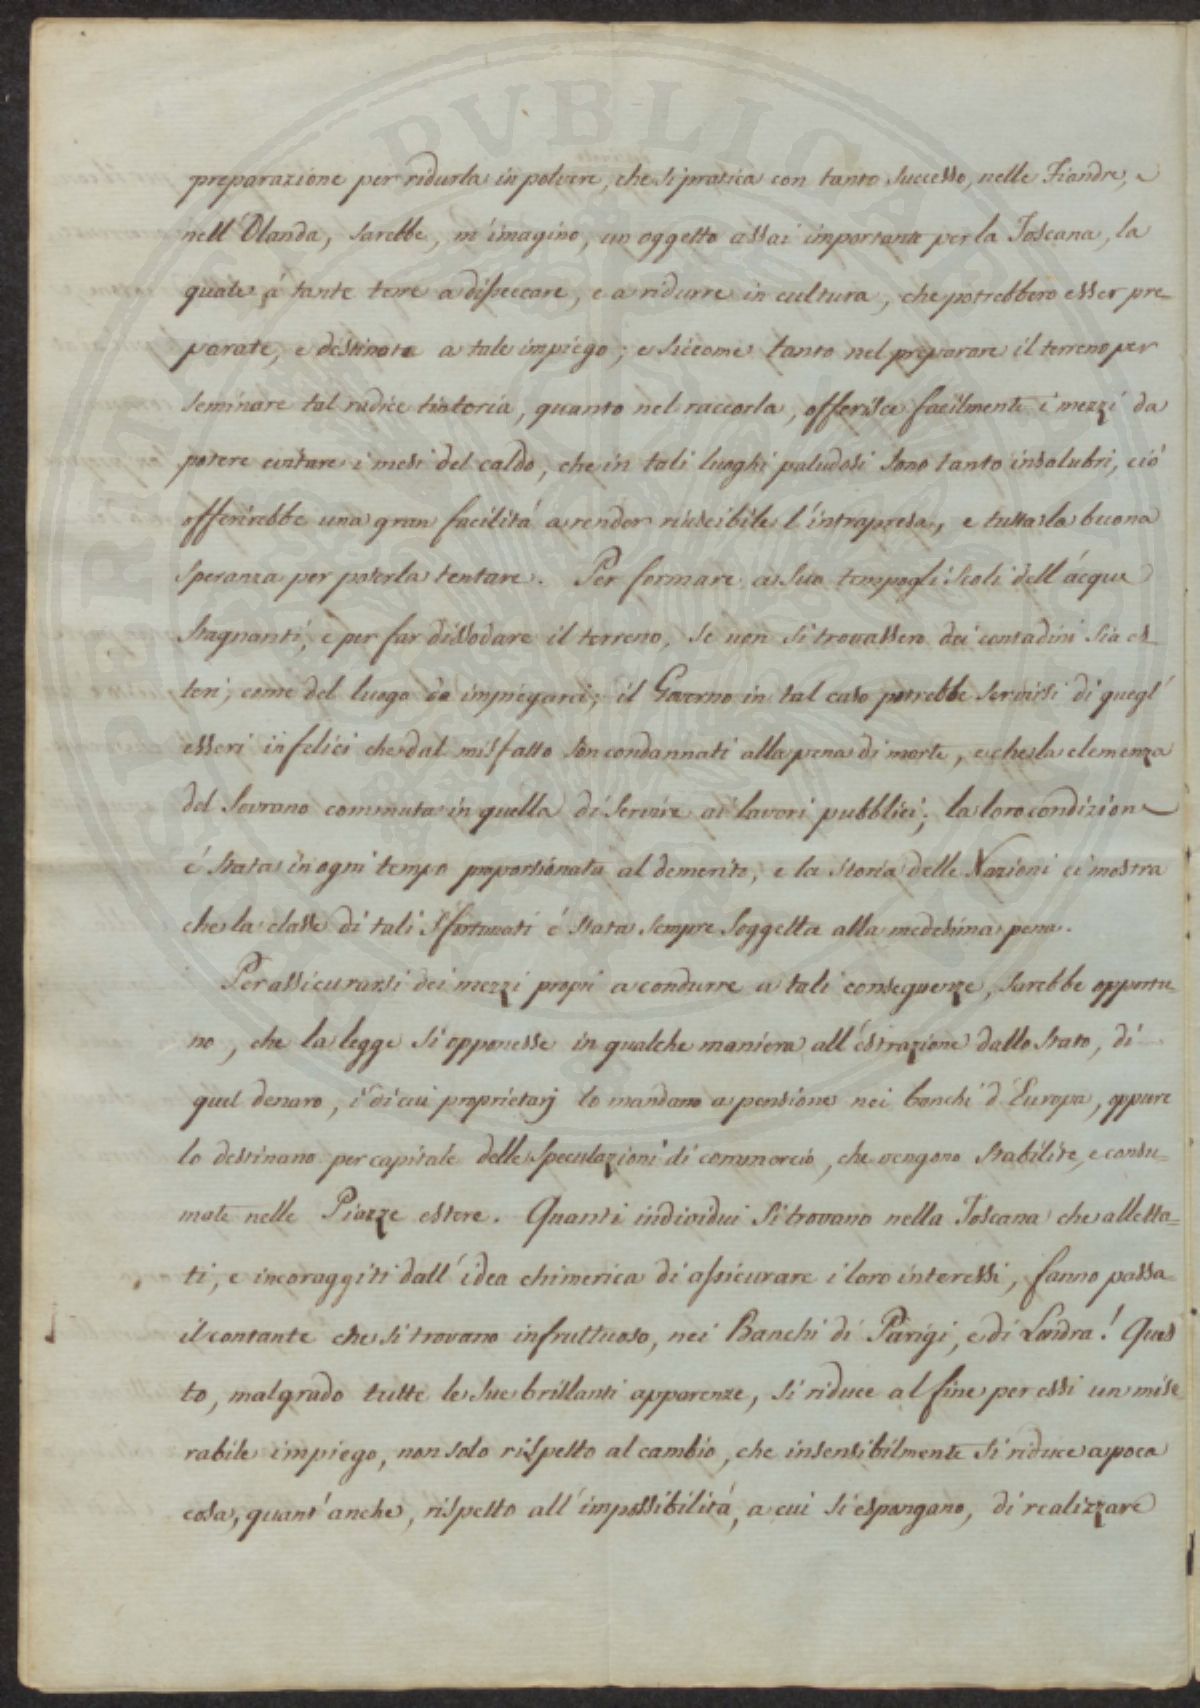 preparazione per ridurla in polvere, che si pratica con tanto successo, nelle Fiandre, e
nell'Olanda, sarebbe, m'imagino, un oggetto assai importante per la Toscana, la
quale á tante terre a disseccare, e a ridurre in cultura, che potrebbero esser pre-
parate, e destinate a tale impiego; e siccome tanto nel preparare il terreno per
seminare tal radice tintoria, quanto nel raccorla, offerisce facilmente i mezzi da
potere evitare i mesi del caldo, che in tali luoghi paludosi sono tanto insalubri, ció
offerirebbe una gran facilitá a render riuscibile l'intrapresa, e tutta la buona
speranza per poterla tentare. Per formare a suo tempo gli scoli dell'acque
stagnanti, e per far dissodare il terreno, se non si trovassero dei contadini sia es-
teri, come del luogo da impiegarci; il Governo in tal caso potrebbe servirsi di quegl'
esseri infelici che dal misfatto son condannati alla pena di morte, e che la clemenza
del Sovrano commuta in quella di servire ai lavori pubblici; la loro condizione
é stata in ogni tempo proporzionata al demerito, e la storia delle Nazioni ci mostra
che la classe di tali sfortunati é stata sempre soggetta alla medesima pena.
Per assicurarsi dei mezzi proprj a condurre a tali conseguenze, sarebbe opportu-
no, che la legge si opponesse in qualche maniera all'estrazione dallo Stato, di
quel denaro, i di cui proprietarj lo mandano a pensione nei banchi d'Europa, oppure
lo destinano per capitale delle speculazioni di commercio, che vengono stabilite, e consu=
mate nelle Piazze estere. Quanti individui si trovano nella Toscana che alletta=
ti, e incoraggiti dall'idea chimerica di assicurare i loro interessi, fanno passa
il contante che si trovano infruttuoso, nei Banchi di Parigi, e di Londra! Ques
to, malgrado tutte le sue brillanti apparenze, si riduce al fine per essi un mise
rabile impiego, non solo rispetto al cambio, che insensibilmente si riduce a poca
cosa, quant'anche, rispetto all'impossibilitá, a cui si espongano, di realizzare